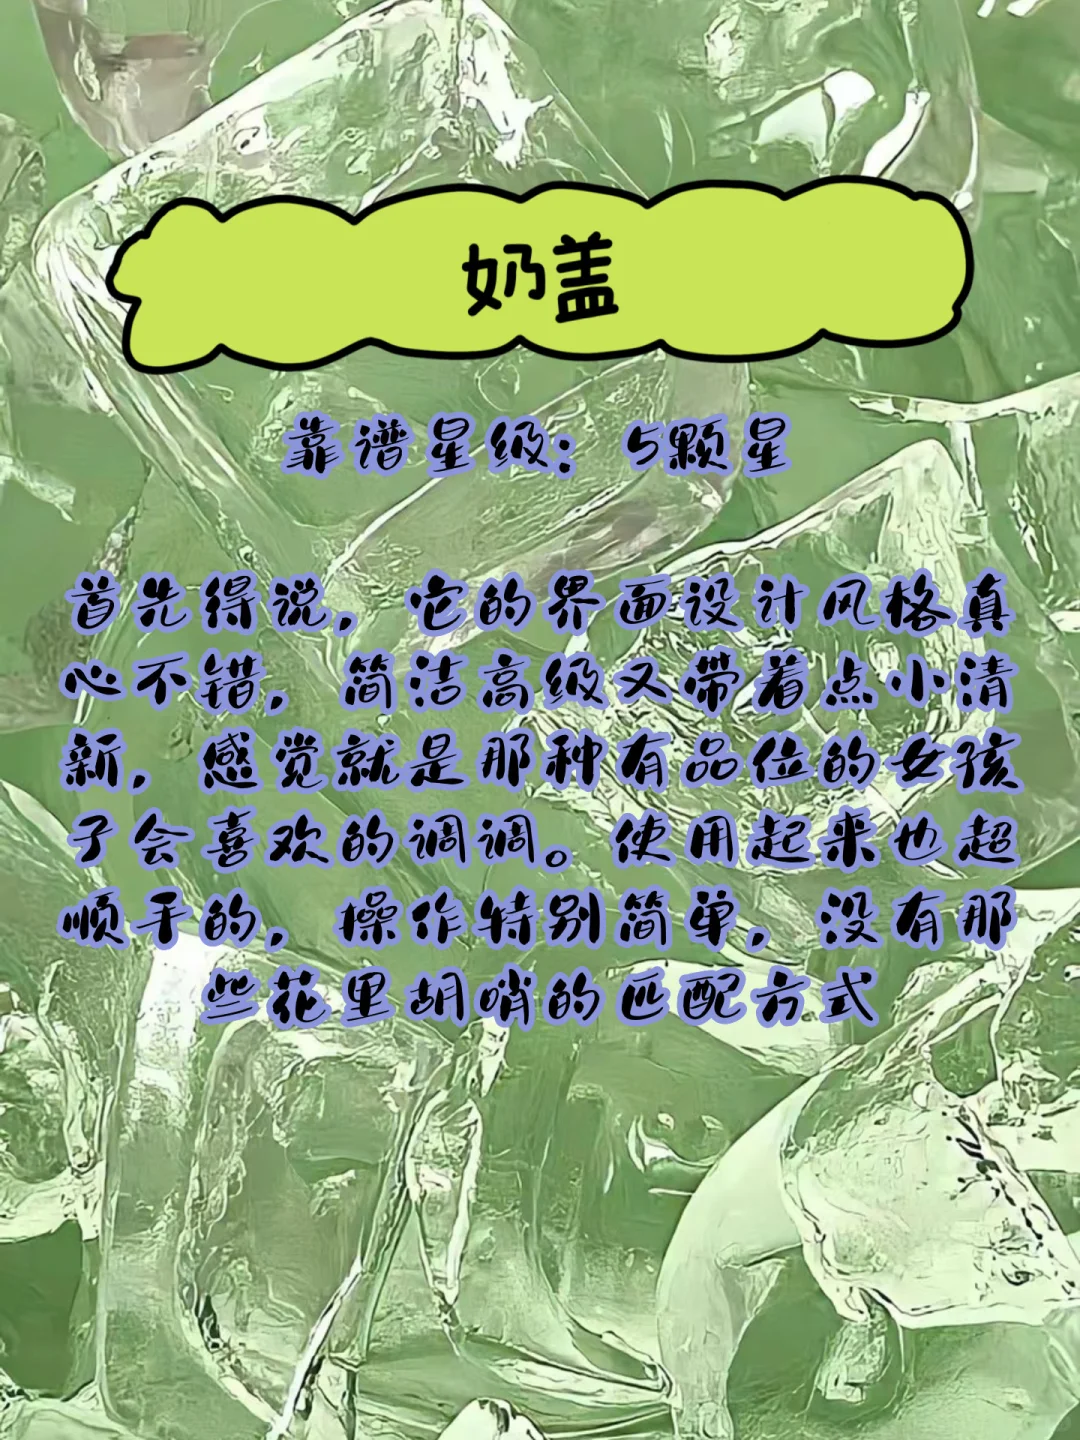 奶盖
靠谱星级：5颗星
首先得说，它的界面设计风格真
心不错，简洁高级又带着点小清
新，感觉就是那种有品位的女孩
子会喜欢的调调。使用起来也超
顺手的，操作特别简单，没有那
些花里胡哨的匹配方式